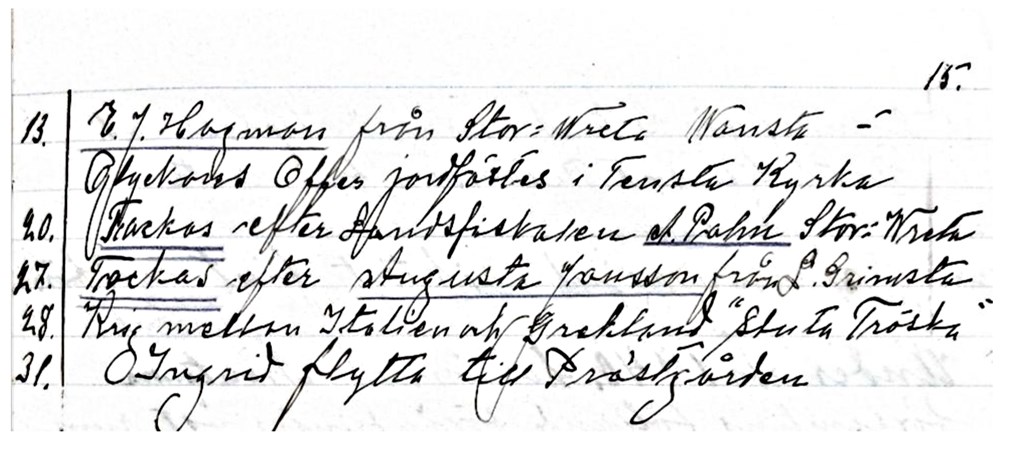 15.
13. E. J. Hagman från Stor=Wreta Wansta -
Olyckans Offer jordfästes i Tensta Kyrka
20. Tackas efter Landsfiskalen A. Palm Stor=Wreta
27. Tackas efter Augusta Jansson från L. Grimsta
28. Krig mellan Italien och Grekland "Sluta Tröska"
31. Ingrid flytta till Prästgården